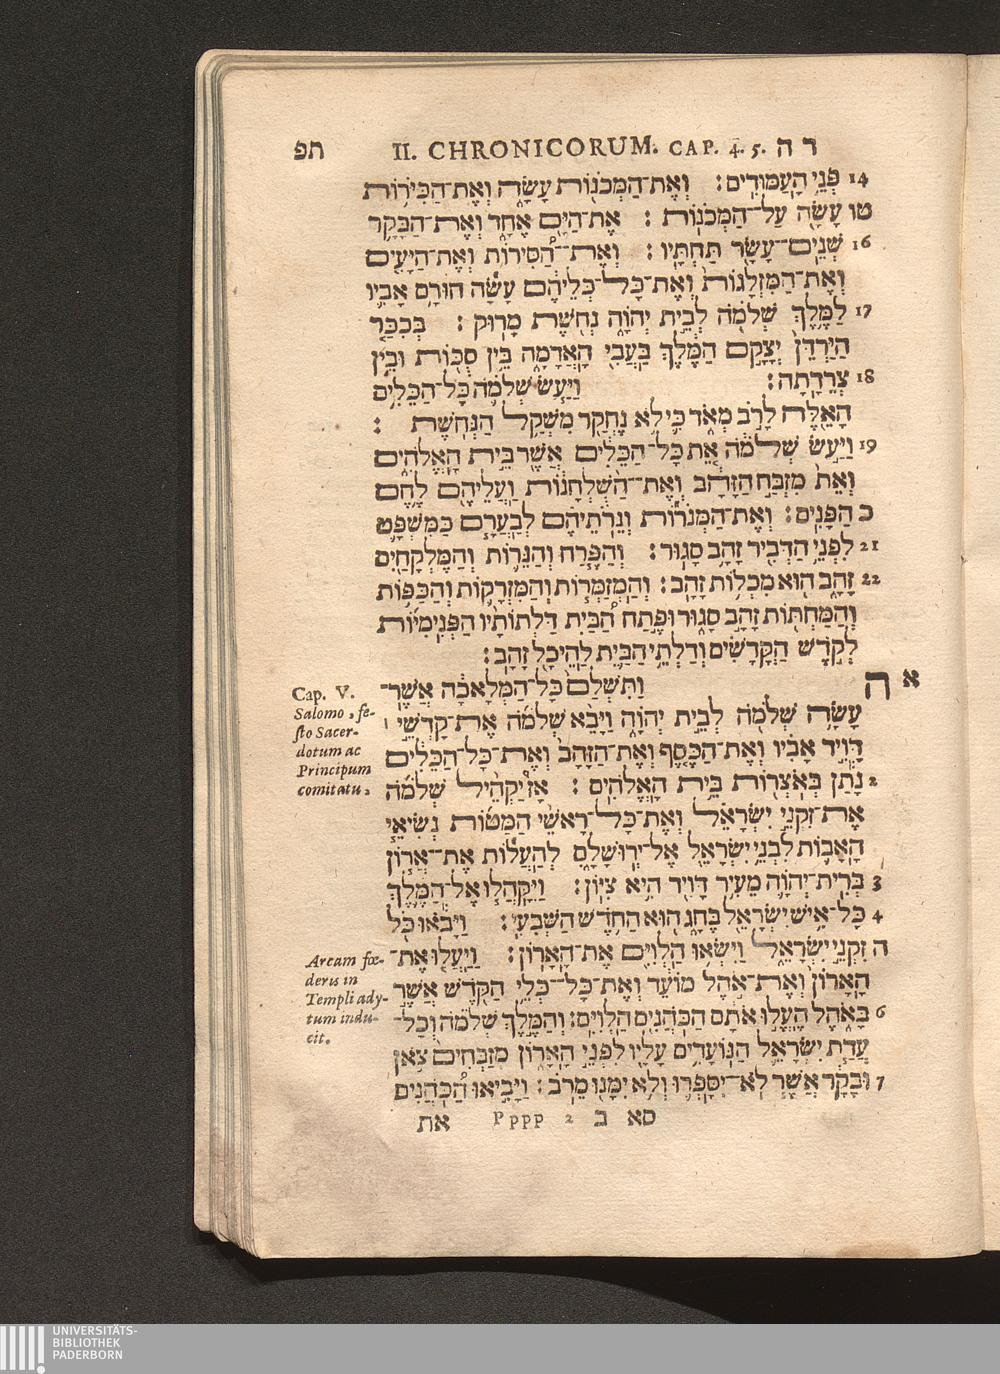 תפ II. CHRONICORUM. CAP. 4. 5. ד ה
14 פְּנֵי הָעַמּוּדִים׃ וְאֶת־הַמְּכֹנוֹת עָשָׂה וְאֶת־הַכִּיֹּרוֹת
טו עָשָׂה עַל־הַמְּכֹנוֹת׃ אֶת־הַיָּם אֶחָד וְאֶת־הַבָּקָר
16 שְׁנֵים־עָשָׂר תַּחְתָּיו׃ וְאֶת־הַסִּירוֹת וְאֶת־הַיָּעִים
וְאֶת־הַמִּזְלָגוֹת וְאֶת־כָּל־כְּלֵיהֶם עָשָׂה חוּרָם אָבִיו
17 לַמֶּלֶךְ שְׁלֹמֹה לְבֵית יְהוָה נְחֹשֶׁת מָרוּק׃ בְּכִכַּר
הַיַּרְדֵּן יְצָקָם הַמֶּלֶךְ בַּעֲבִי הָאֲדָמָה בֵּין סֻכּוֹת וּבֵין
18 צְרֵדָתָה׃ וַיַּעַשׂ שְׁלֹמֹה כָּל־הַכֵּלִים
הָאֵלֶּה לָרֹב מְאֹד כִּי לֹא נֶחְקַר מִשְׁקַל הַנְּחֹשֶׁת׃
19 וַיַּעַשׂ שְׁלֹמֹה אֵת כָּל־הַכֵּלִים אֲשֶׁר בֵּית הָאֱלֹהִים
וְאֵת מִזְבַּח הַזָּהָב וְאֶת־הַשֻּׁלְחָנוֹת וַעֲלֵיהֶם לֶחֶם
כ הַפָּנִים׃ וְאֶת־הַמְּנֹרוֹת וְנֵרֹתֵיהֶם לְבַעֲרָם כַּמִּשְׁפָּט
21 לִפְנֵי הַדְּבִיר זָהָב סָגוּר׃ וְהַפֶּרַח וְהַנֵּרוֹת וְהַמֶּלְקָחַיִם
22 זָהָב הוּא מִכְלוֹת זָהָב׃ וְהַמְזַמְּרוֹת וְהַמִּזְרָקוֹת וְהַכַּפּוֹת
וְהַמַּחְתּוֹת זָהָב סָגוּר וּפֶתַח הַבַּיִת דַּלְתוֹתָיו הַפְּנִימִיּוֹת
לְקֹדֶשׁ הַקֳּדָשִׁים וְדַלְתֵי הַבַּיִת לַהֵיכָל זָהָב׃
א ה וַתִּשְׁלַם כָּל־הַמְּלָאכָה אֲשֶׁר־
עָשָׂה שְׁלֹמֹה לְבֵית יְהוָה וַיָּבֵא שְׁלֹמֹה אֶת־קָדְשֵׁי ׀
דָּוִיד אָבִיו וְאֶת־הַכֶּסֶף וְאֶת־הַזָּהָב וְאֶת־כָּל־הַכֵּלִים
2 נָתַן בְּאֹצְרוֹת בֵּית הָאֱלֹהִים׃ אָז יַקְהֵיל שְׁלֹמֹה
אֶת־זִקְנֵי יִשְׂרָאֵל וְאֶת־כָּל־רָאשֵׁי הַמַּטּוֹת נְשִׂיאֵי
הָאָבוֹת לִבְנֵי יִשְׂרָאֵל אֶל־יְרוּשָׁלָםִ לְהַעֲלוֹת אֶת־אֲרוֹן
3 בְּרִית־יְהוָה מֵעִיר דָּוִיד הִיא צִיּוֹן׃ וַיִּקָּהֲלוּ אֶל־הַמֶּלֶךְ
4 כָּל־אִישׁ יִשְׂרָאֵל בֶּחָג הוּא הַחֹדֶשׁ הַשְּׁבִעִי׃ וַיָּבֹאוּ כֹּל
ה זִקְנֵי יִשְׂרָאֵל וַיִּשְׂאוּ הַלְוִיִּם אֶת־הָאָרוֹן׃ וַיַּעֲלוּ אֶת־
הָאָרוֹן וְאֶת־אֹהֶל מוֹעֵד וְאֶת־כָּל־כְּלֵי הַקֹּדֶשׁ אֲשֶׁר
6 בָּאֹהֶל הֶעֱלוּ אֹתָם הַכֹּהֲנִים הַלְוִיִּם׃ וְהַמֶּלֶךְ שְׁלֹמֹה וְכָל־
עֲדַת יִשְׂרָאֵל הַנּוֹעָדִים עָלָיו לִפְנֵי הָאָרוֹן מְזַבְּחִים צֹאן
7 וּבָקָר אֲשֶׁר לֹא־יִסָּפְרוּ וְלֹא יִמָּנוּ מֵרֹב׃ וַיָּבִיאוּ הַכֹּהֲנִים
סא ב Pppp 2 את
Cap. V.
Salomo, fe-
sto Sacer-
dotum ac
Principum
comitatu,
Arcam fœ-
deris in
Templi ady-
tum indu-
cit.
UNIVERSITÄTS-
BIBLIOTHEK
PADERBORN